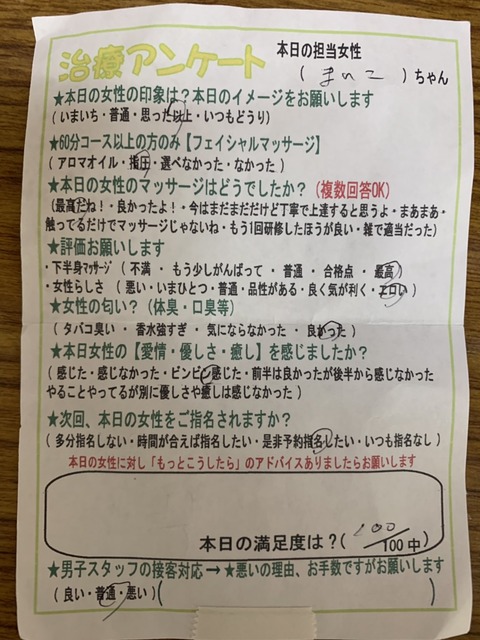 治療アンケート
本日の担当女性
( まいこ )ちゃん
★本日の女性の印象は?本日のイメージをお願いします
( いまいち・普通・思った以上・いつもどうり )
★60分コース以上の方のみ【フェイシャルマッサージ】
( アロマオイル・指圧・選べなかった・なかった )
★本日の女性のマッサージはどうでしたか? (複数回答OK)
(最高だね!・良かったよ!・今はまだまだだけど丁寧で上達すると思うよ・まあまあ・
触ってるだけでマッサージじゃないね・もう1回研修したほうが良い・雑で適当だった)
★評価お願いします
・下半身マッサージ ( 不満 ・ もう少しがんばって ・ 普通 ・ 合格点 ・ 最高 )
・女性らしさ ( 悪い・いまひとつ・普通・品性がある・良く気が利く・エロい )
★女性の匂い? (体臭・口臭等)
( タバコ臭い ・ 香水強すぎ ・ 気にならなかった ・ 良かった )
★本日女性の【愛情・優しさ・癒し】を感じましたか?
( 感じた・感じなかった・ビンビン感じた・前半は良かったが後半から感じなかった
やることやってるが別に優しさや癒しは感じなかった )
★次回、本日の女性をご指名されますか?
( 多分指名しない・時間が合えば指名したい・是非予約指名したい・いつも指名なし )
本日の女性に対し「もっとこうしたら」のアドバイスありましたらお願いします
本日の満足度は?( 100/100中 )
★男子スタッフの接客対応 → ★悪いの理由、お手数ですがお願いします
( 良い・普通・悪い ) ( )